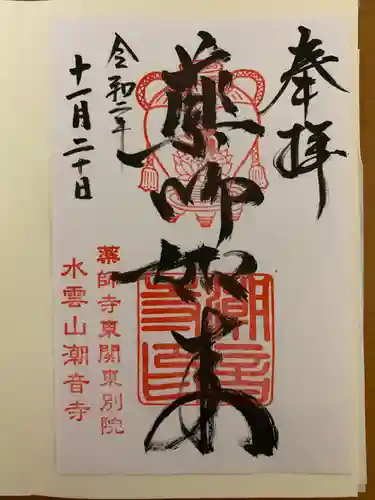 奉拝
薬師如来
令和二年
十一月二十日
薬師寺東関東別院
水雲山潮音寺